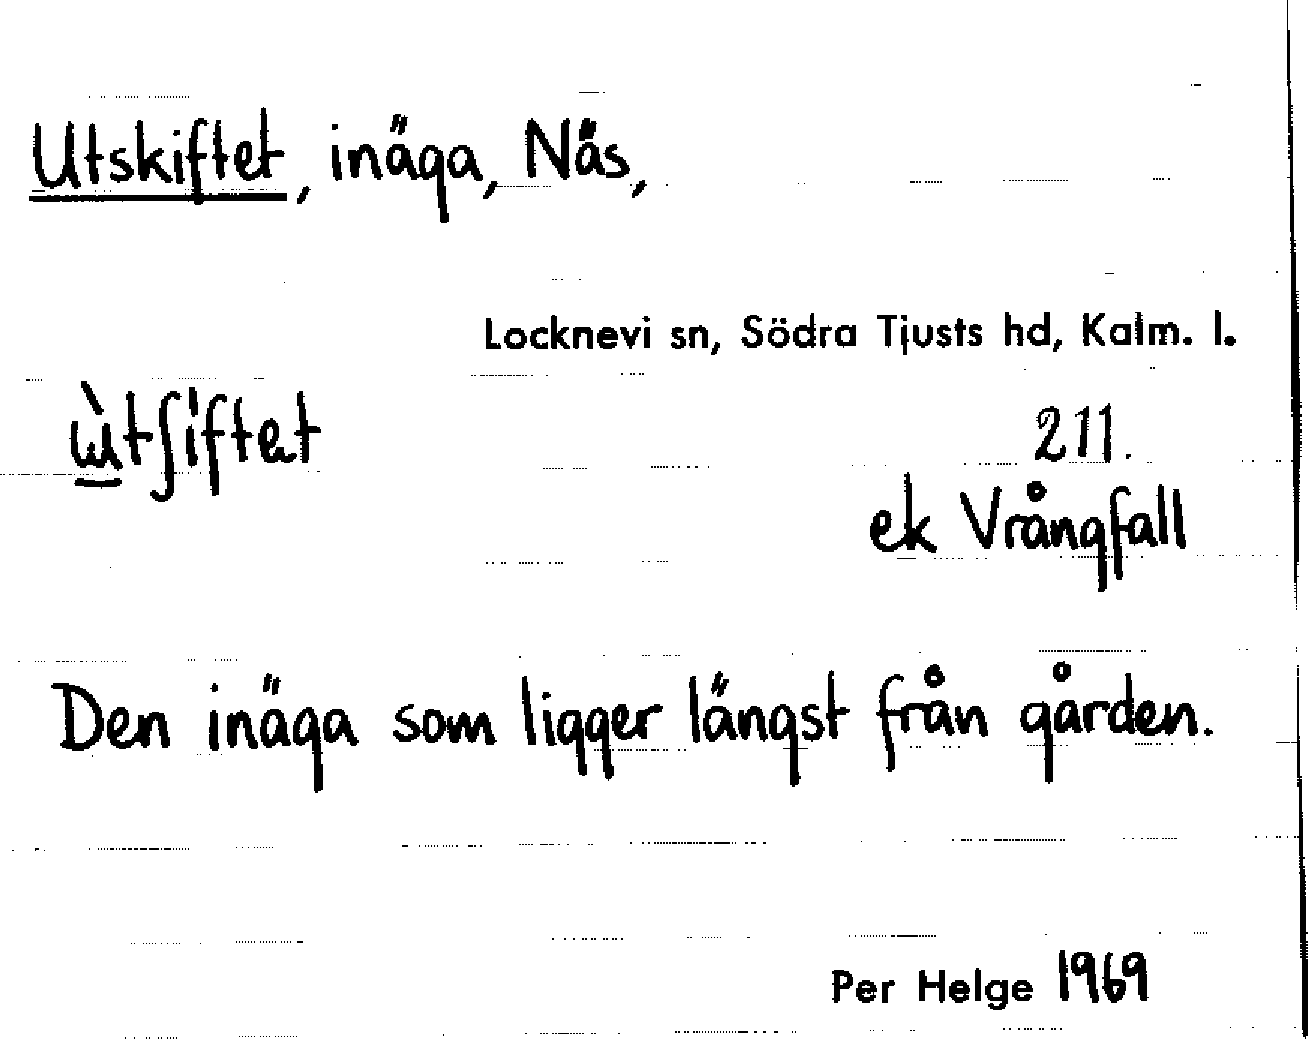 Utskiftet, inäga, Näs,
Locknevi sn, Södra Tjusts hd, Kalm. l.
ɯ̀tʃiftet
211.
ek Vrångfall
Den inäga som ligger längst från gården.
Per Helge 1969